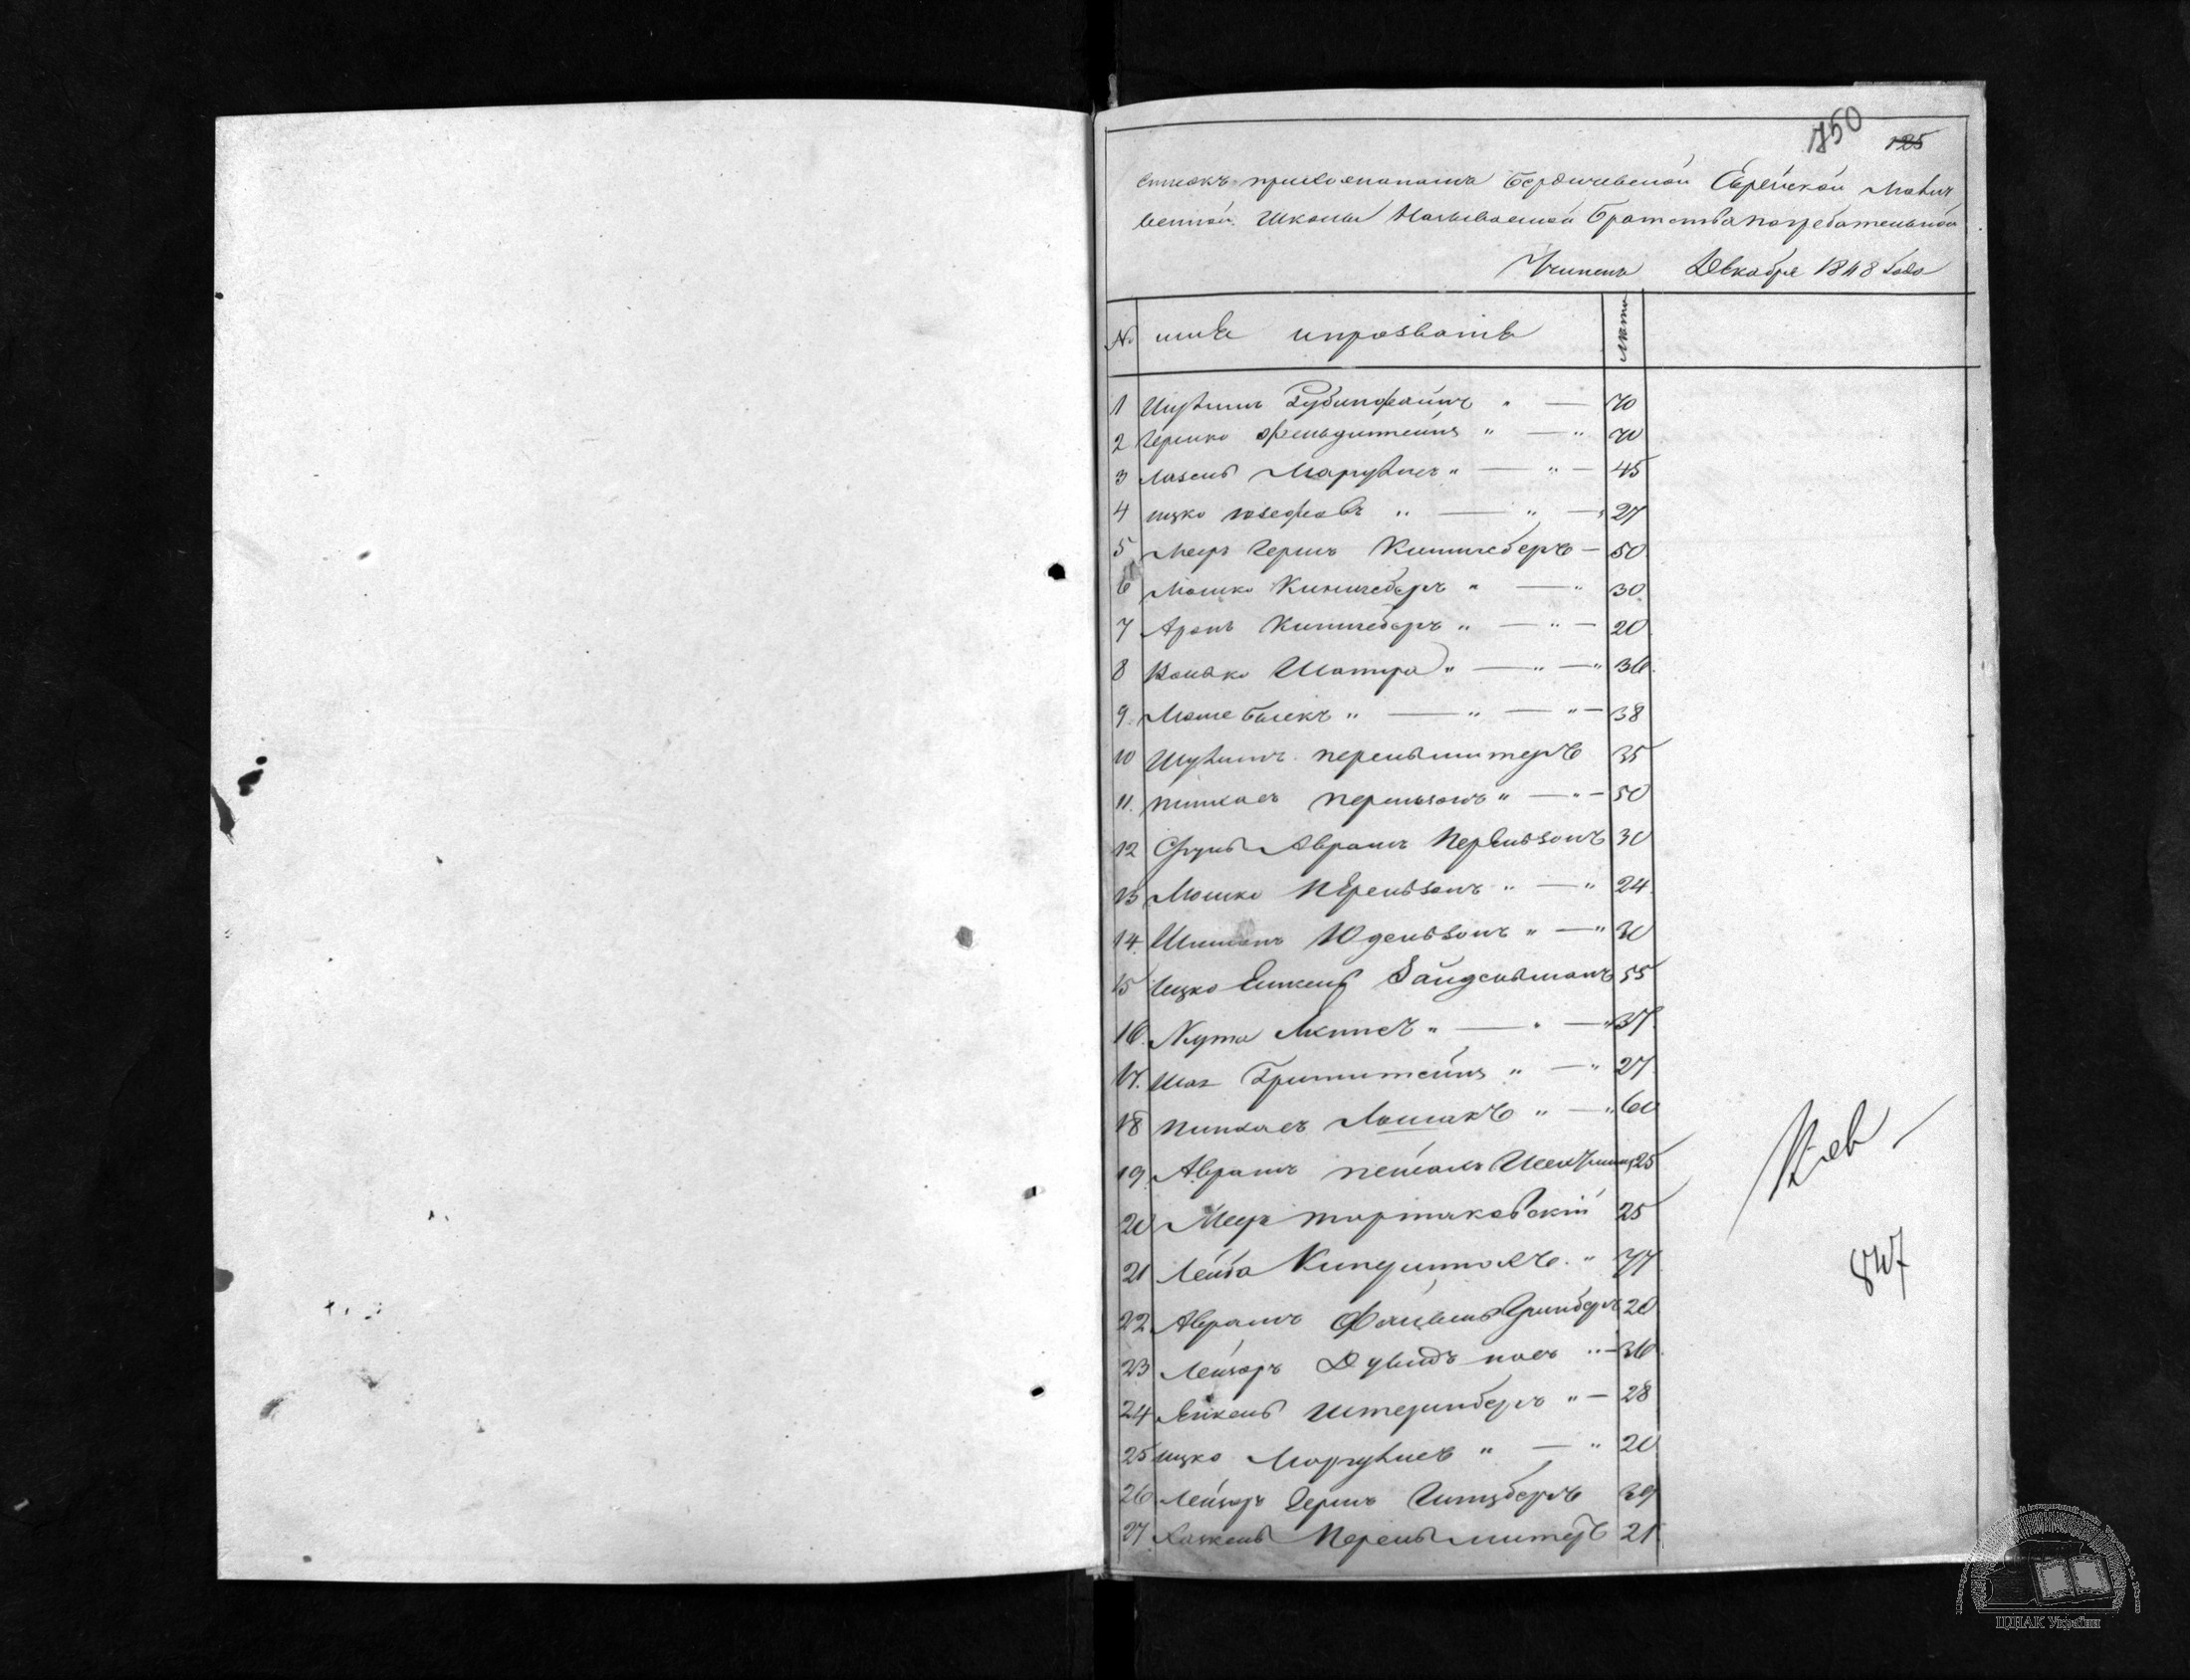 150
125
Списокъ прихожанамъ Бердичевской Еврейской Молит
венной Школы Называемой Братства погребательной
Декабря 1848 Года
№ имя и прозваніе лѣта
1 Шулимъ Рубинфайнъ " — 70
2 Гершко Фельдштейнъ " — " 70
3 Лазель Маргулисъ " — " — 45
4 ицко юзефовъ " — " — 27
5 Меер Гершъ Кинигсбергъ — 50
6 Мошко Кинигсбергъ " — " 30
7 Аронъ Кинигсбергъ " — " — 20
8 Волько Шапира " — " — " 36
9 Моше Блекъ " — " — " — 38
10 Шулимъ перельмитеръ 35
11. пинхасъ перельзонъ " — " — 50
12 Сруль Аврамъ Перельзонъ 30
13 Мошко перельзонъ " — " 24
14 Шимонъ Юдельзонъ " — " 30
15 Ицко Зайдельманъ 55
16. Нута " — " — " 37
17. Шая Гринштейнъ " — " 27
18 пинхасъ Лошакъ " — " 60
19 Аврамъ 25
20 Меер тартаковскій 25
21 Лейба "
22 Аврамъ Файвель Гринбергъ 20
23 Лейзоръ Дувидъ " — 36
24 Янкель Штеринбергъ " — 28
25 ицко Маргулисъ " — " 20
26 Лейзоръ Гершъ Гинзбергъ 39
27 Хаскель Перельмитеръ 21
847
ЦДІАК України